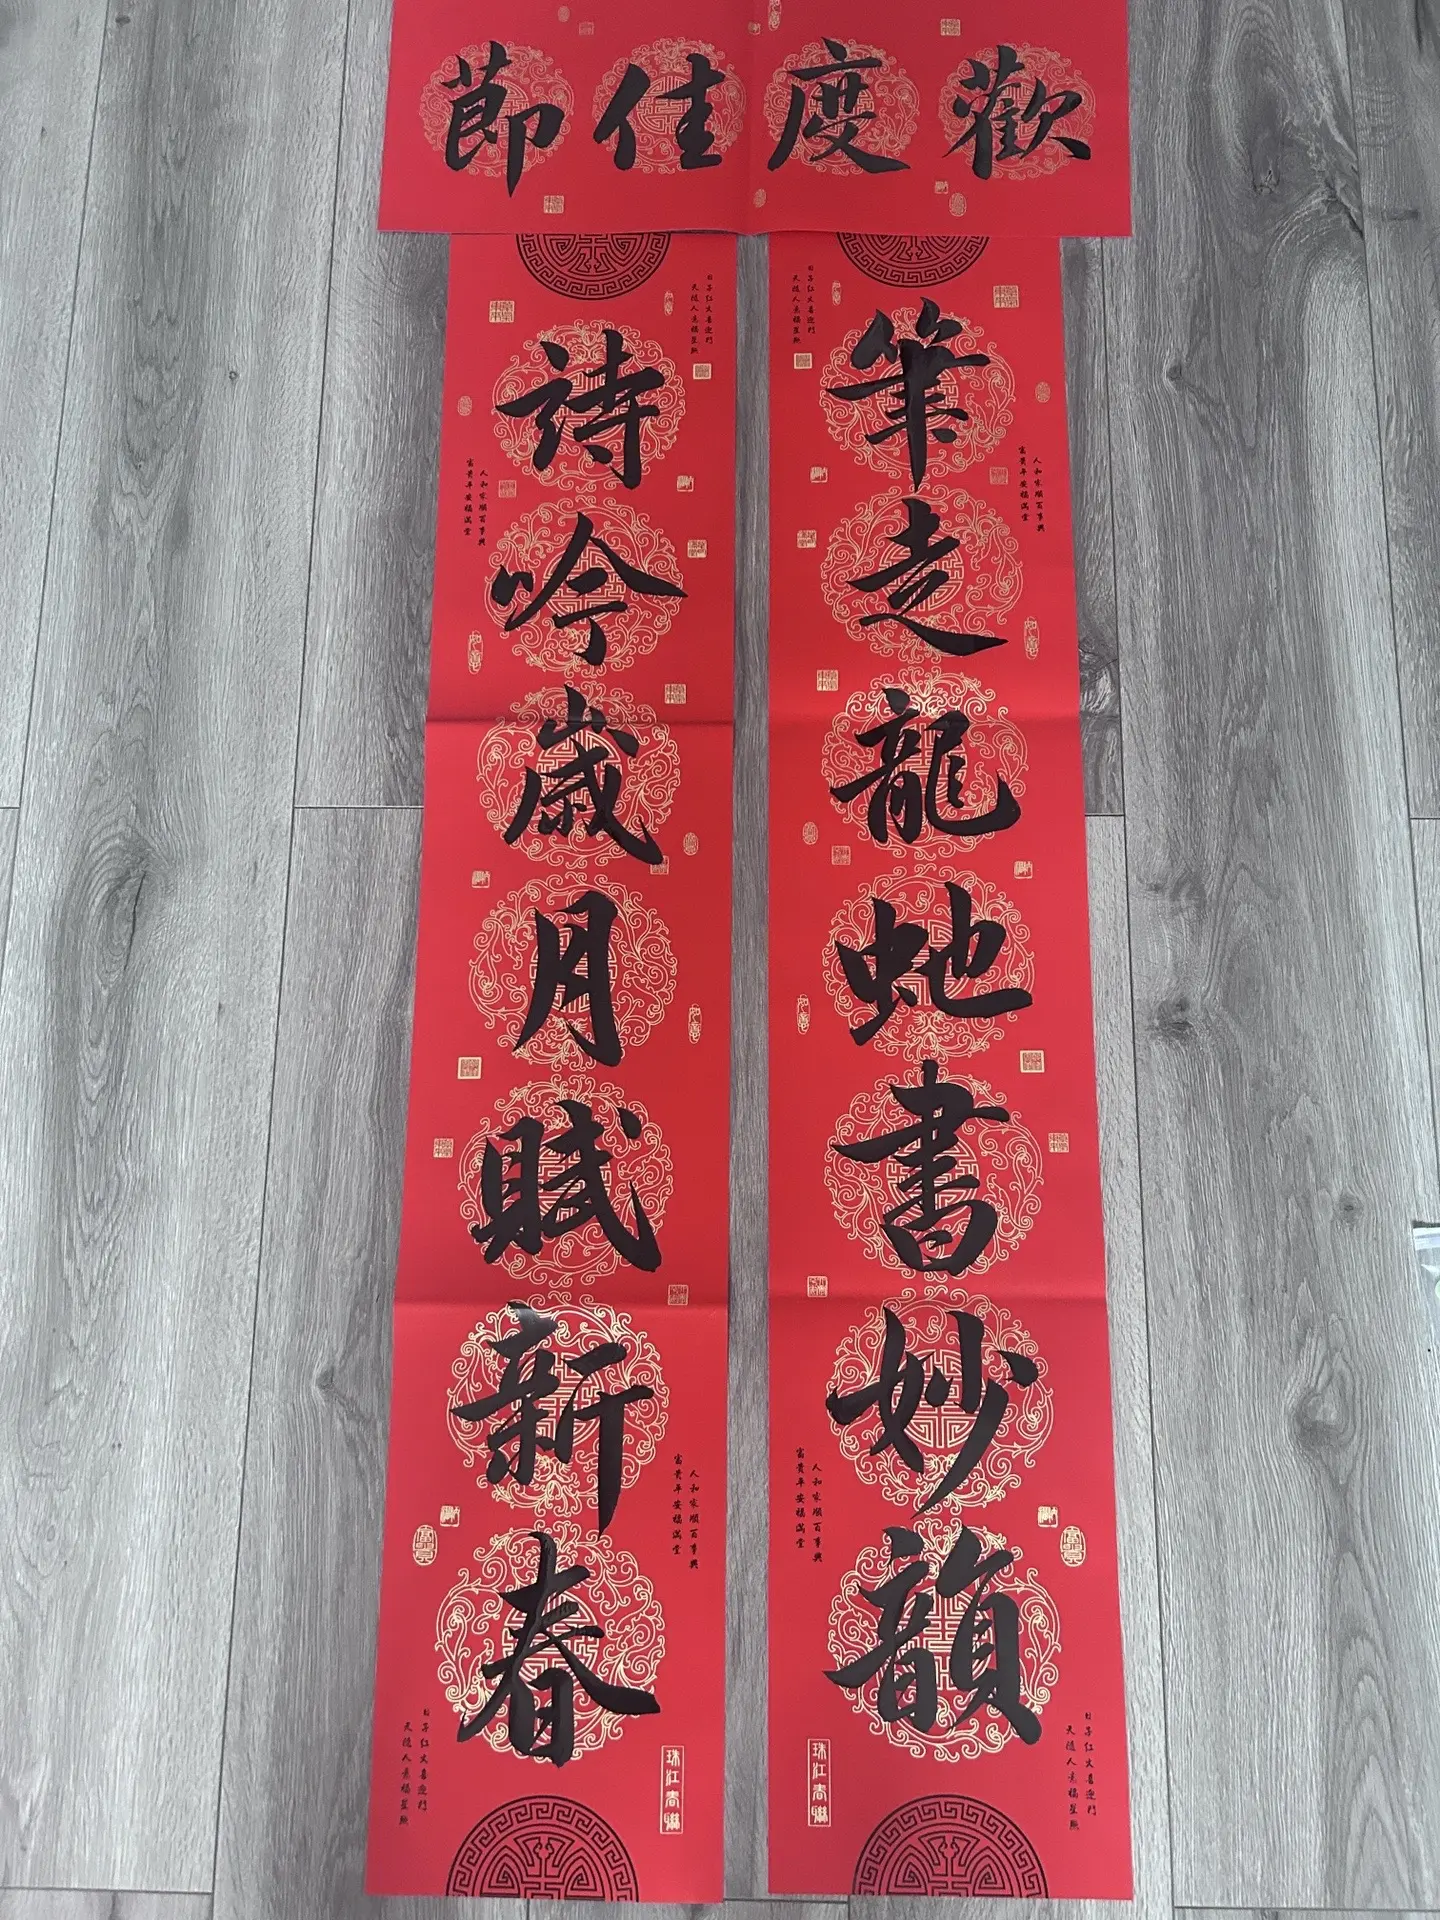 歡度佳節
筆走龍蛇書妙韻
詩吟歲月賦新春
日子红火喜迎門
天隨人意福星照
人和家順百事興
富貴平安福滿堂
人和家順百事興
富貴平安福滿堂
日子红火喜迎門
天隨人意福星照
珠江春聯
日子红火喜迎門
天隨人意福星照
人和家順百事興
富貴平安福滿堂
人和家順百事興
富貴平安福滿堂
日子红火喜迎門
天隨人意福星照
珠江春聯
如意
如意
如意
如意
富貴
富貴